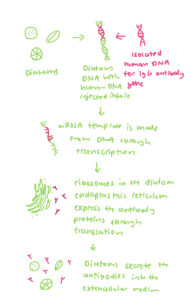 Diatoms
Diatoms
DNA with
human DNA
injected into it
isolated
human DNA
for IgG antibody
gene
mRNA template is made
from DNA through
transcription
ribosomes in the diatom
endoplasmic reticulum
express the antibody
proteins through
translation
Diatoms secrete the
antibodies into the
extracellular medium